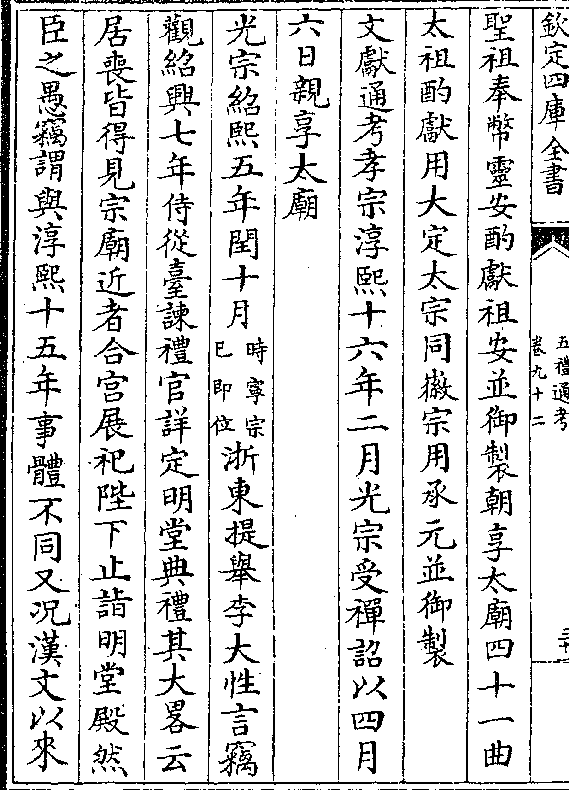 欽定四庫全書
五禮通考
卷九十二
三十
聖祖奉幣靈安酌獻祖安並御製朝享太廟四十一曲
太祖酌獻用大定太宗同徽宗用承元並御製
文獻通考孝宗淳熙十六年二月光宗受禪詔以四月
六日親享太廟
光宗紹熙五年閏十月時寧宗已即位浙東提舉李大性言竊
觀紹興七年侍從臺諫禮官詳定明堂典禮其大畧云
居喪皆得見宗廟近者合宮展祀陛下止詣明堂殿然
臣之愚竊謂與淳熙十五年事體不同又况漢文以來